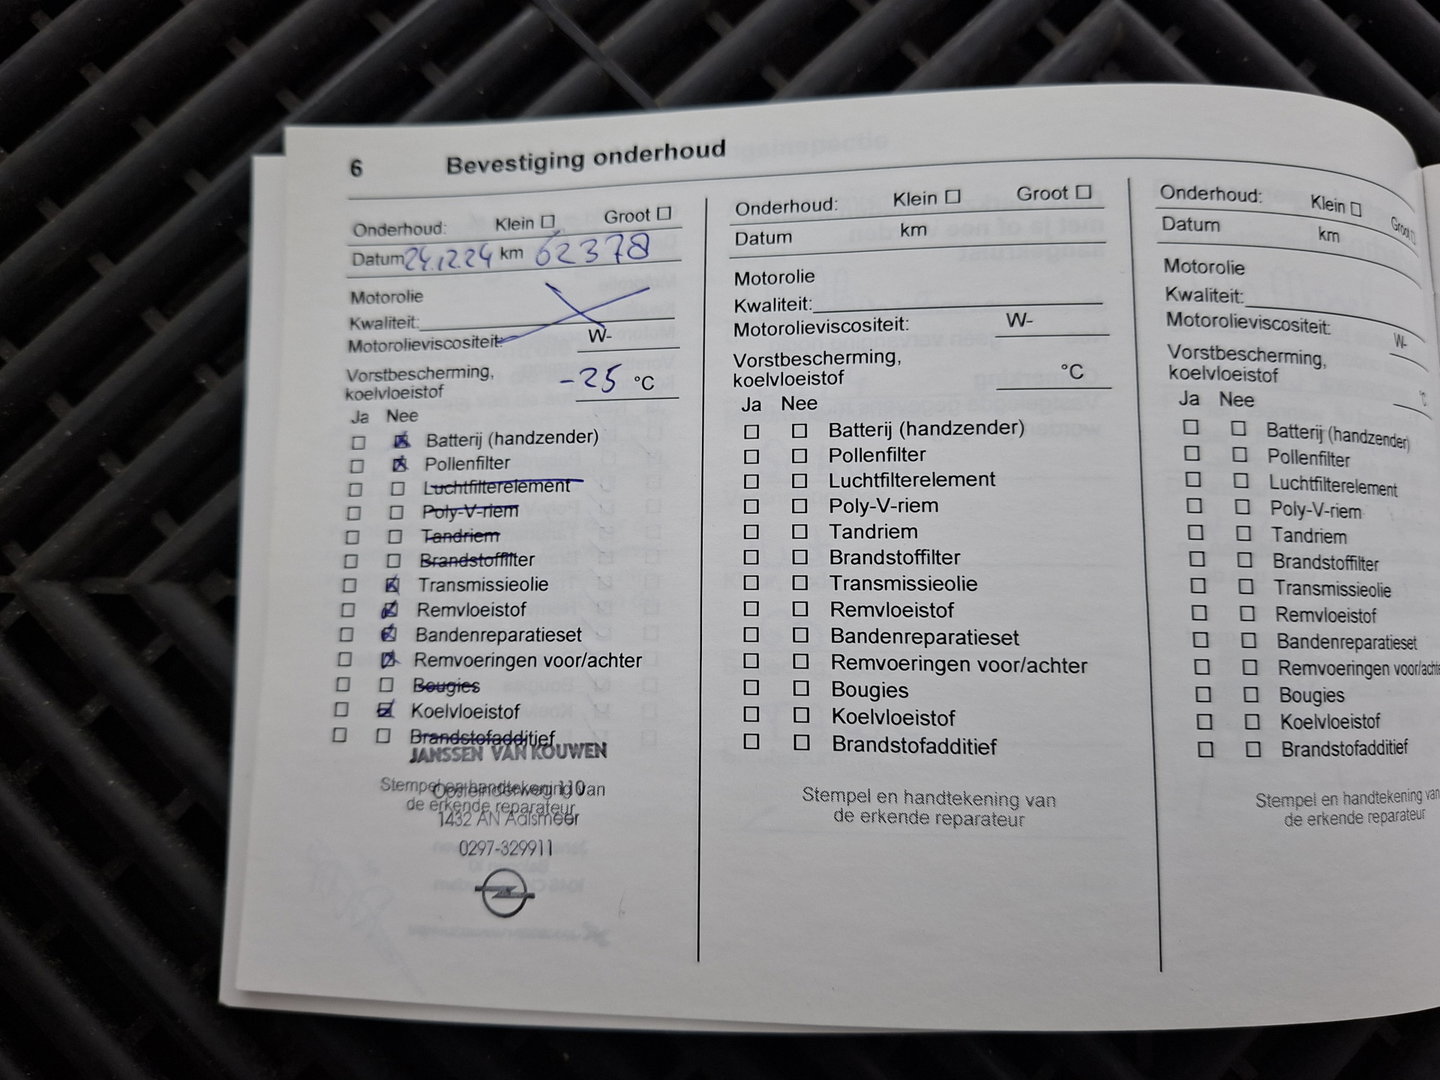 6 Bevestiging onderhoud
Onderhoud: Klein ☐ Groot ☐
Datum 24.12.24 km 62378
Motorolie
Kwaliteit:
Motorolieviscositeit: W-
Vorstbescherming,
koelvloeistof -25 °C
Ja Nee
☐ ☒ Batterij (handzender)
☐ ☒ Pollenfilter
☐ ☐ Luchtfilterelement
☐ ☐ Poly-V-riem
☐ ☐ Tandriem
☐ ☐ Brandstoffilter
☐ ☒ Transmissieolie
☐ ☒ Remvloeistof
☐ ☒ Bandenreparatieset
☐ ☒ Remvoeringen voor/achter
☐ ☐ Bougies
☐ ☒ Koelvloeistof
☐ ☐ Brandstofadditief
JANSSEN VAN KOUWEN
Stempel en handtekening van
110
de erkende reparateur
1432 AN Aalsmeer
0297-329911
Onderhoud: Klein ☐ Groot ☐
Datum km
Motorolie
Kwaliteit:
Motorolieviscositeit: W-
Vorstbescherming,
koelvloeistof °C
Ja Nee
☐ ☐ Batterij (handzender)
☐ ☐ Pollenfilter
☐ ☐ Luchtfilterelement
☐ ☐ Poly-V-riem
☐ ☐ Tandriem
☐ ☐ Brandstoffilter
☐ ☐ Transmissieolie
☐ ☐ Remvloeistof
☐ ☐ Bandenreparatieset
☐ ☐ Remvoeringen voor/achter
☐ ☐ Bougies
☐ ☐ Koelvloeistof
☐ ☐ Brandstofadditief
Stempel en handtekening van
de erkende reparateur
Onderhoud: Klein ☐ Groot ☐
Datum km
Motorolie
Kwaliteit:
Motorolieviscositeit: W-
Vorstbescherming,
koelvloeistof °C
Ja Nee
☐ ☐ Batterij (handzender)
☐ ☐ Pollenfilter
☐ ☐ Luchtfilterelement
☐ ☐ Poly-V-riem
☐ ☐ Tandriem
☐ ☐ Brandstoffilter
☐ ☐ Transmissieolie
☐ ☐ Remvloeistof
☐ ☐ Bandenreparatieset
☐ ☐ Remvoeringen voor/achte
☐ ☐ Bougies
☐ ☐ Koelvloeistof
☐ ☐ Brandstofadditief
Stempel en handtekening van
de erkende reparateur